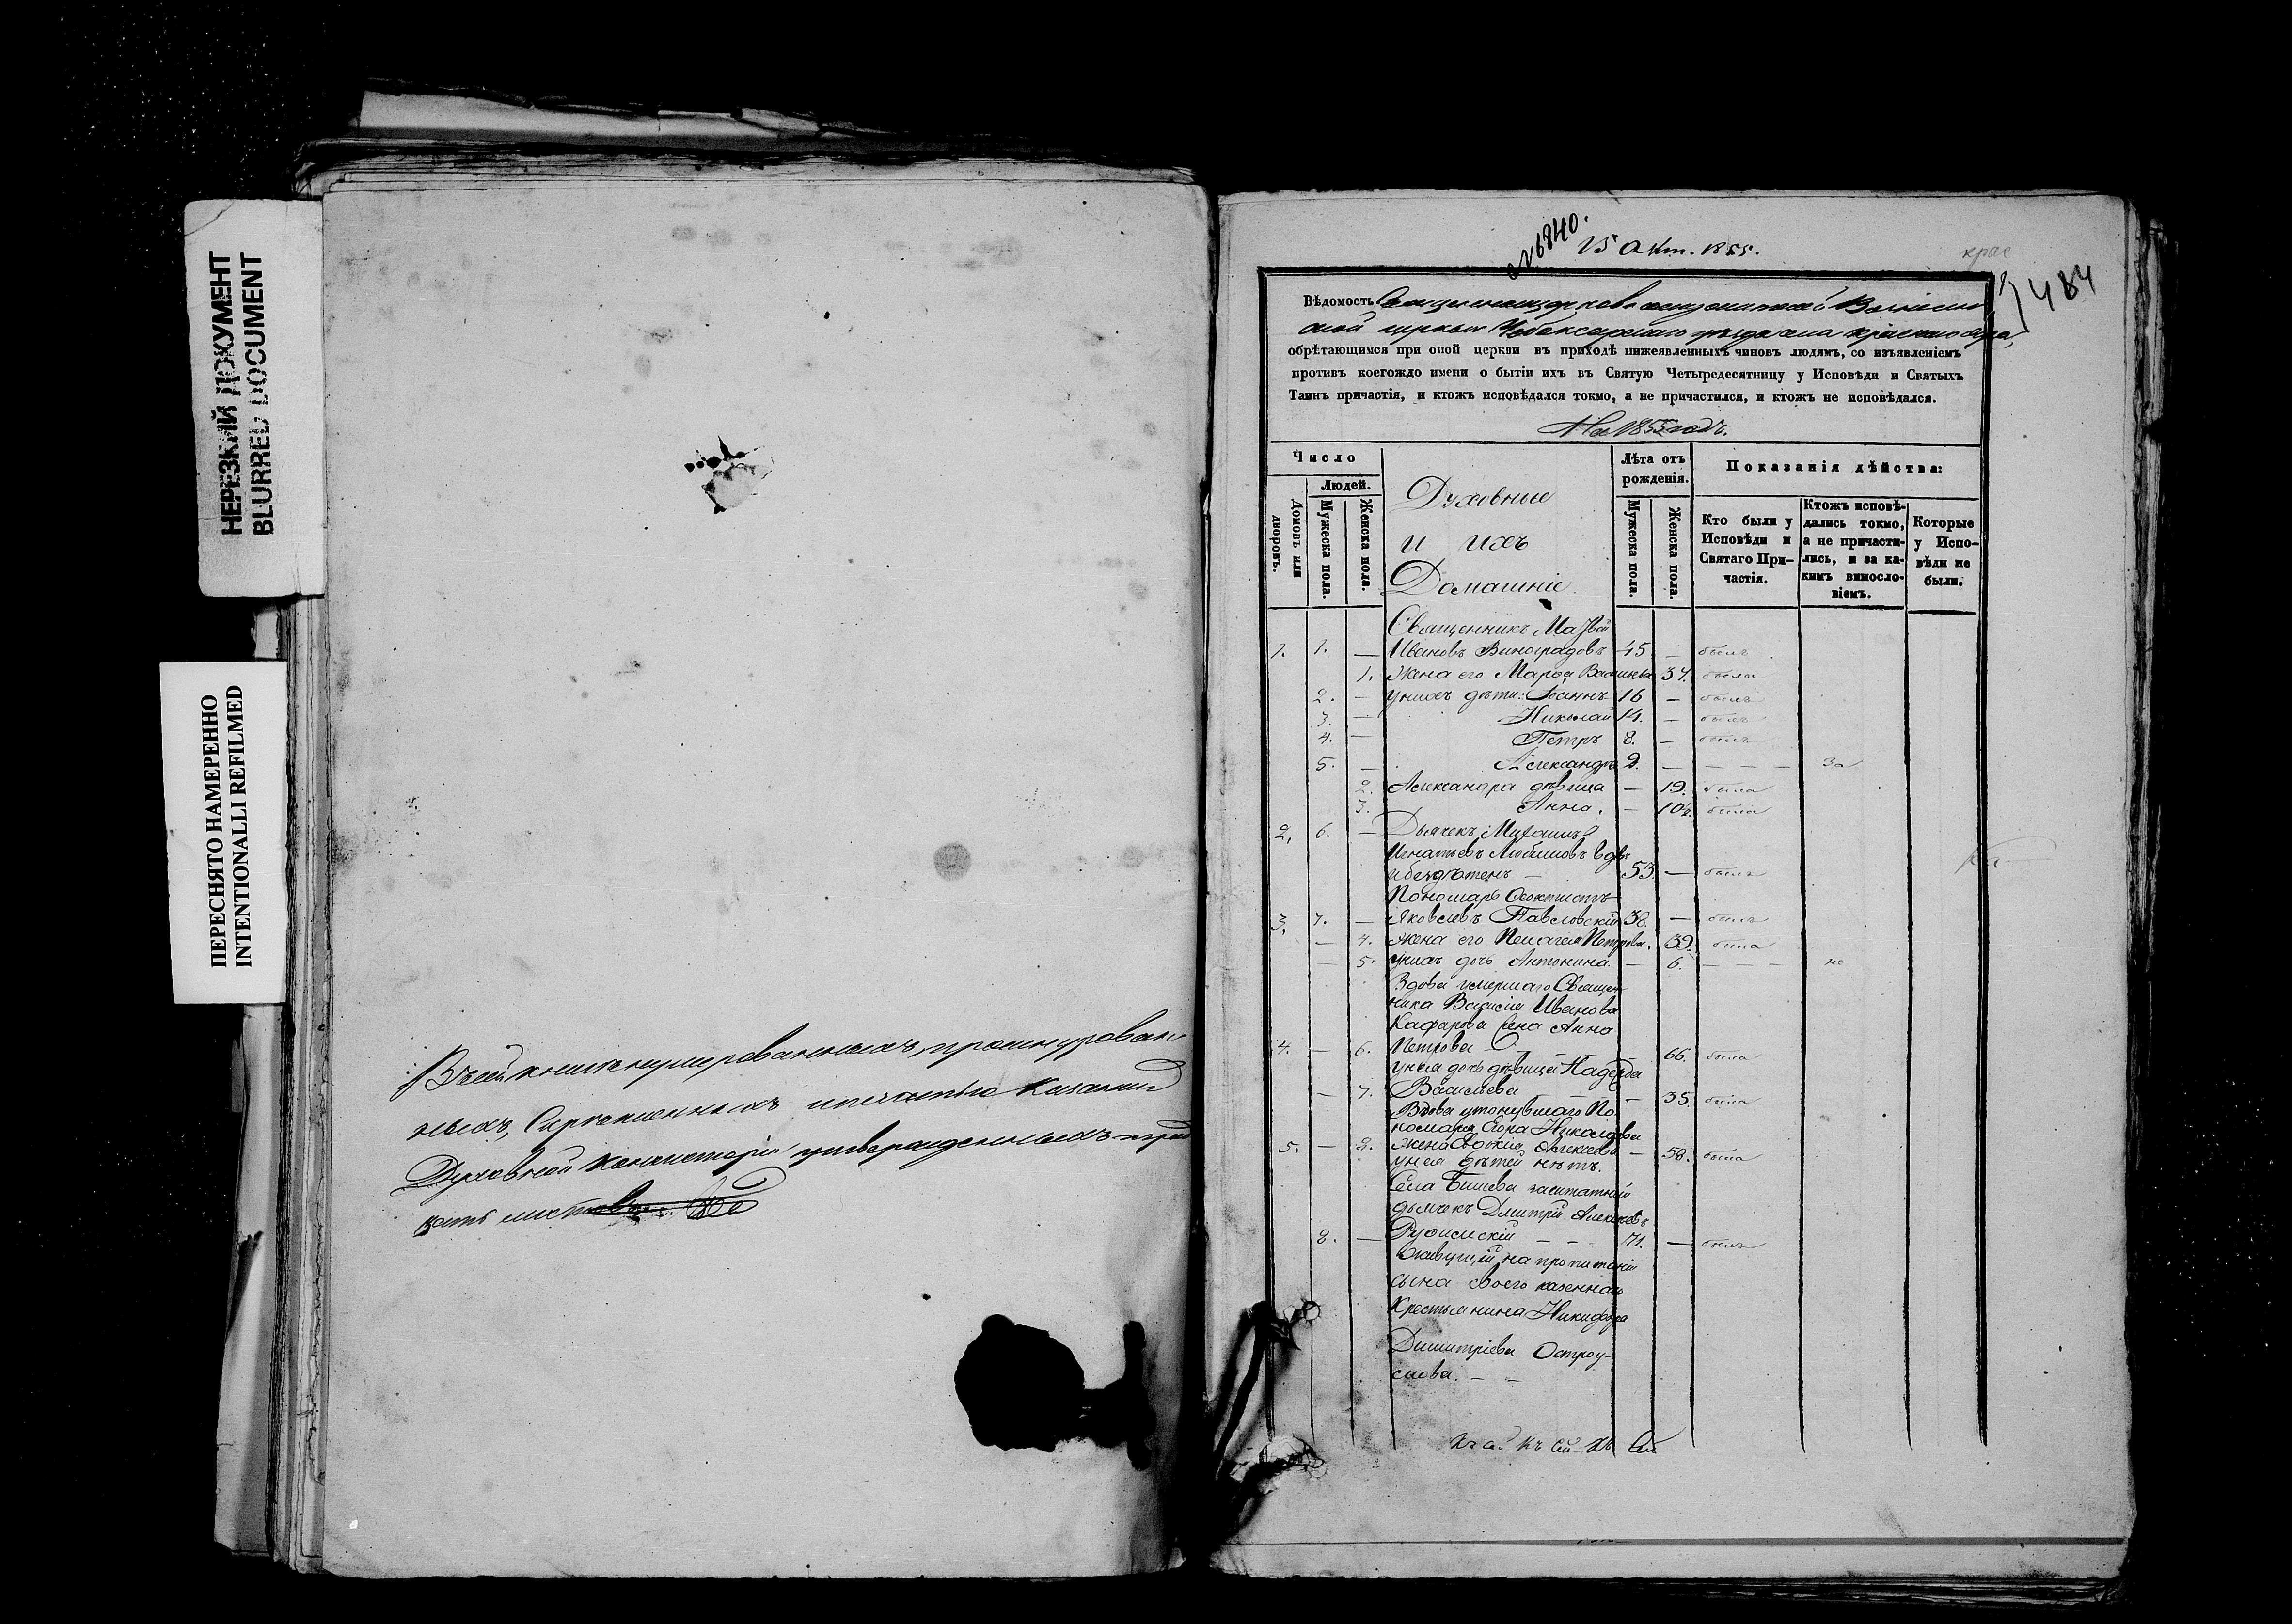 НЕРЕЗКИЙ ДОКУМЕНТ
BLURRED DOCUMENT
ПЕРЕСНЯТО НАМЕРЕННО
INTENTIONALLI REFILMED
Въ сей книгѣ нумерованныхъ, прошнурован
ныхъ, Скрѣпленныхъ и печатью Казанской
Духовной Консисторіи утвержденныхъ
пять листовъ
№ 6840.
25 Окт. 1855.
крас
484
Вѣдомость
ской церкви Чебоксарскаго уѣзда села Краснаго Яра,
обрѣтающимся при оной церкви въ приходѣ нижеявленныхъ чиновъ людямъ, со изъявленіемъ
противъ коегождо имени о бытіи ихъ въ Святую Четыредесятницу у Исповѣди и Святыхъ
Таинъ причастія, и ктожъ исповѣдался токмо, а не причастился, и ктожъ не исповѣдался.
На 1855 годъ.
Число
Людей.
Домовъ или дворовъ.
Мужеска пола.
Женска пола.
Духовные
и ихъ
Домашніе.
Лѣта отъ рожденія.
Мужеска пола.
Женска пола.
Показанія дѣйства:
Кто были у Исповѣди и Святаго При-частія.
Ктожъ исповѣ-дались токмо, а не причасти-лись, и за ка-кимъ винос-ло-віемъ.
Которые у Испо-вѣди не были.
Священникъ Матвѣй
1. 1. — Ивановъ Виноградовъ 45 — былъ
1. Жена его Марѳа Васильева 37. была
2. — у нихъ дѣти: Іоаннъ 16 — былъ
3. — Николай 14. — былъ
4. — Петръ 8. — былъ
5. — Александръ 2. — — — — за
2. Александра дѣвица — 19. была
3. Анна. — 10½ была
2. 6. — Дьячекъ Михаилъ
Игнатьевъ Любимовъ вдовъ
и бездѣтенъ — 53. — былъ
Пономарь Ѳеоктистъ
3. 7. — Яковлевъ Павловскій 38. — былъ
— 4. жена его Пелагея Петрова. 39. была
— 5. у нихъ дочь Антонина — 6. — — — мс
Вдова умершаго Священ-
ника Василія Иванова
Кафарова жена Анна
4. — 6. Петрова — 66. была
у нея дочь дѣвица Надежда
— 7. Васильева — 35. была
Вдова утонувшаго По-
номаря Егора Николаева
5. — 8. жена Евдокія Алексѣева — 58. была
у нея дѣтей нѣтъ.
Села Бишева заштатный
дьячекъ Дмитрій Алексѣевъ
8. — Руфимскій — 71. — былъ
живущій на пропитаніи
сына своего казеннаго
Крестьянина Никифора
Димитріева Остроу-
мова. — —